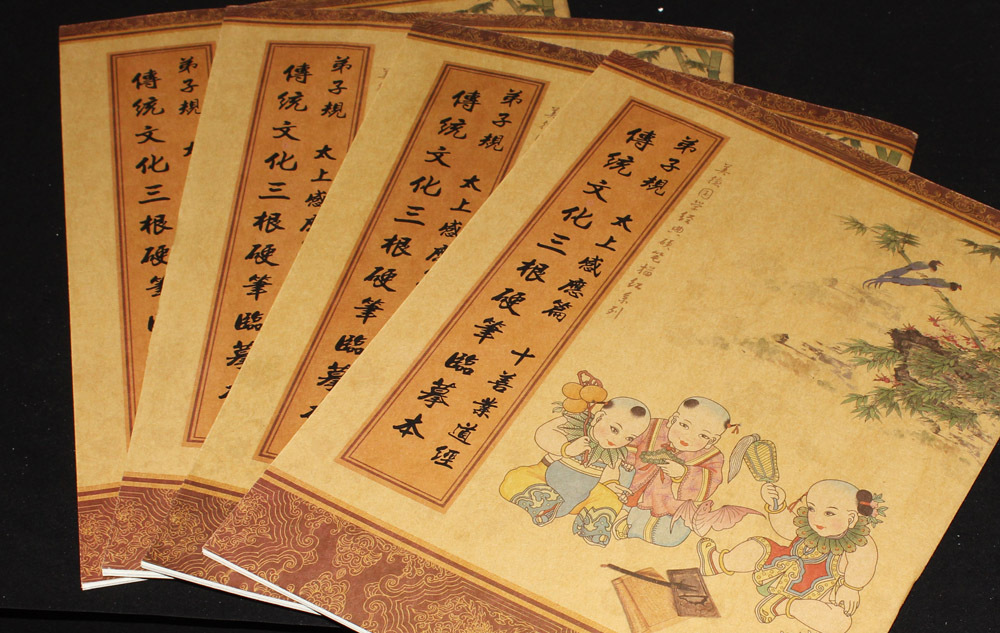 弟子規
傳統文化三根硬筆
弟子規 太上感
傳統文化三根硬筆臨摹
弟子規 太上感應
傳統文化三根硬筆臨摹
国学经典硬笔描红系列
弟子規 太上感應篇 十善業道經
傳統文化三根硬筆臨摹本